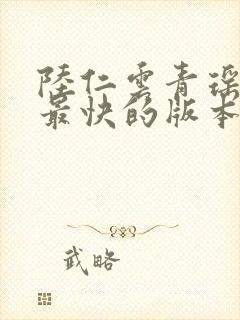 陸仁雲青瑶
最快的版本
武略